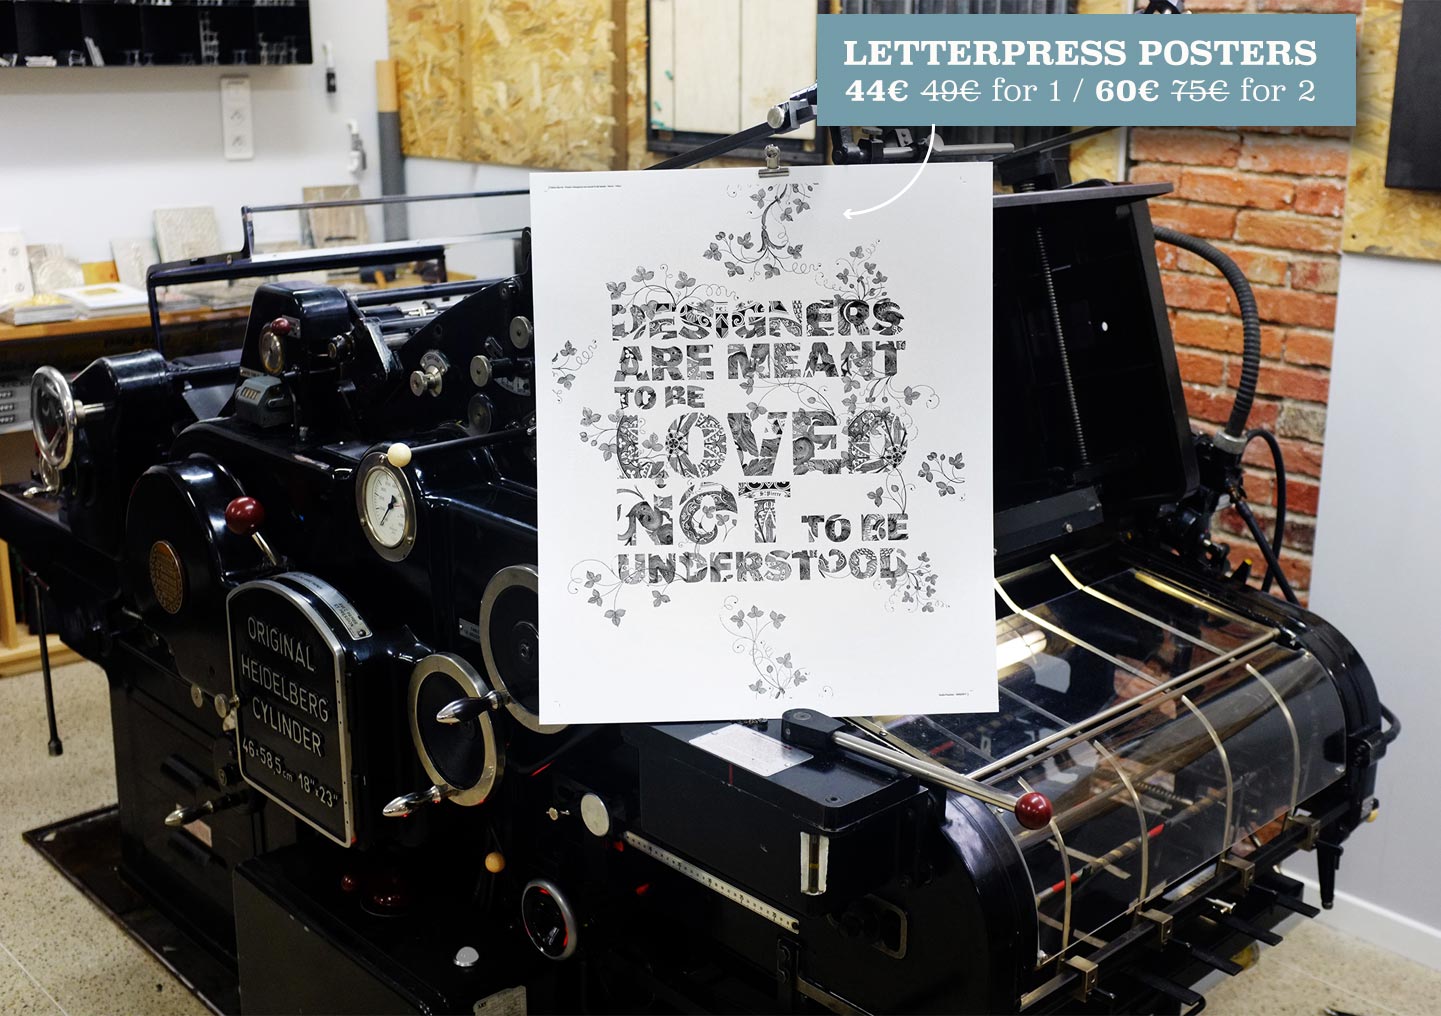 LETTERPRESS POSTERS
44€ 49€ for 1 / 60€ 75€ for 2
DESIGNERS
ARE MEANT
TO BE
LOVED
NOT TO BE
UNDERSTOOD
ORIGINAL
HEIDELBERG
CYLINDER
46×58,5cm 18"×23"